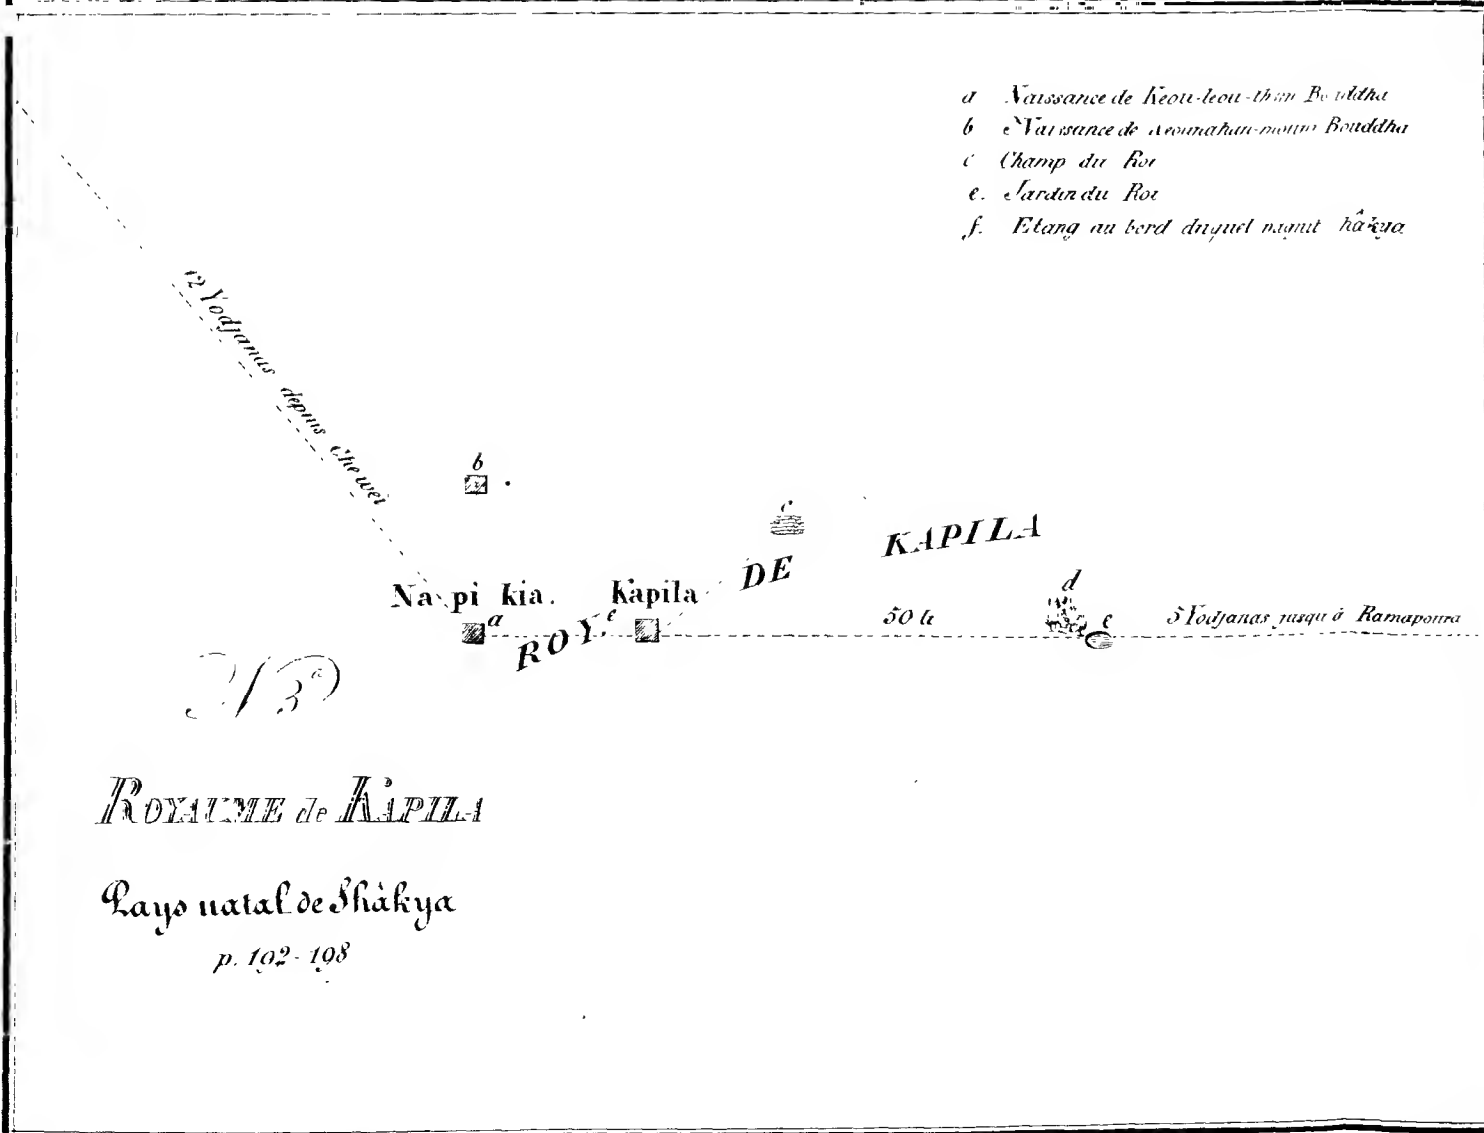 a Naissance de Keou-leou-than Bouddha
b Naissance de Bouddha
c Champ du Roi
e. Jardin du Roi
f. Etang au bord duquel naquit hâkya
12 Yodjanas depuis Che wei
b
c
ROY. DE KAPILA
Na pi kia.
Kapila
a
e
50 li
d
e
5 Yodjanas jusqu'à Ramapoura
N 3
ROYAUME de KAPILA
Pays natal de Shàkya
p. 192-198